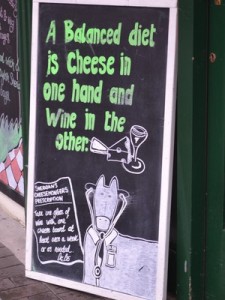 A Balanced diet
is Cheese in
one hand and
Wine in the
other.
CHEESEMONGERS
PRESCRIPTION
Take one glass of
wine with one
cheese board at
least once a week
or as needed